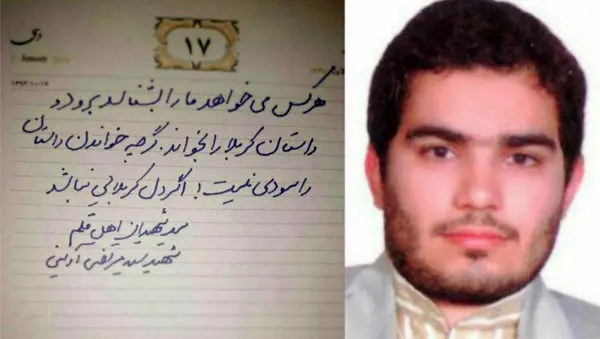 دی
۱۷
January
هرکس می‌خواهد ما را بشناسد برود و
داستان کربلا را بخواند. گرچه خواندن داستان
را سودی نیست؛ اگر دل کربلایی نباشد
سید شهیدان اهل قلم
شهید سید مرتضی آوینی